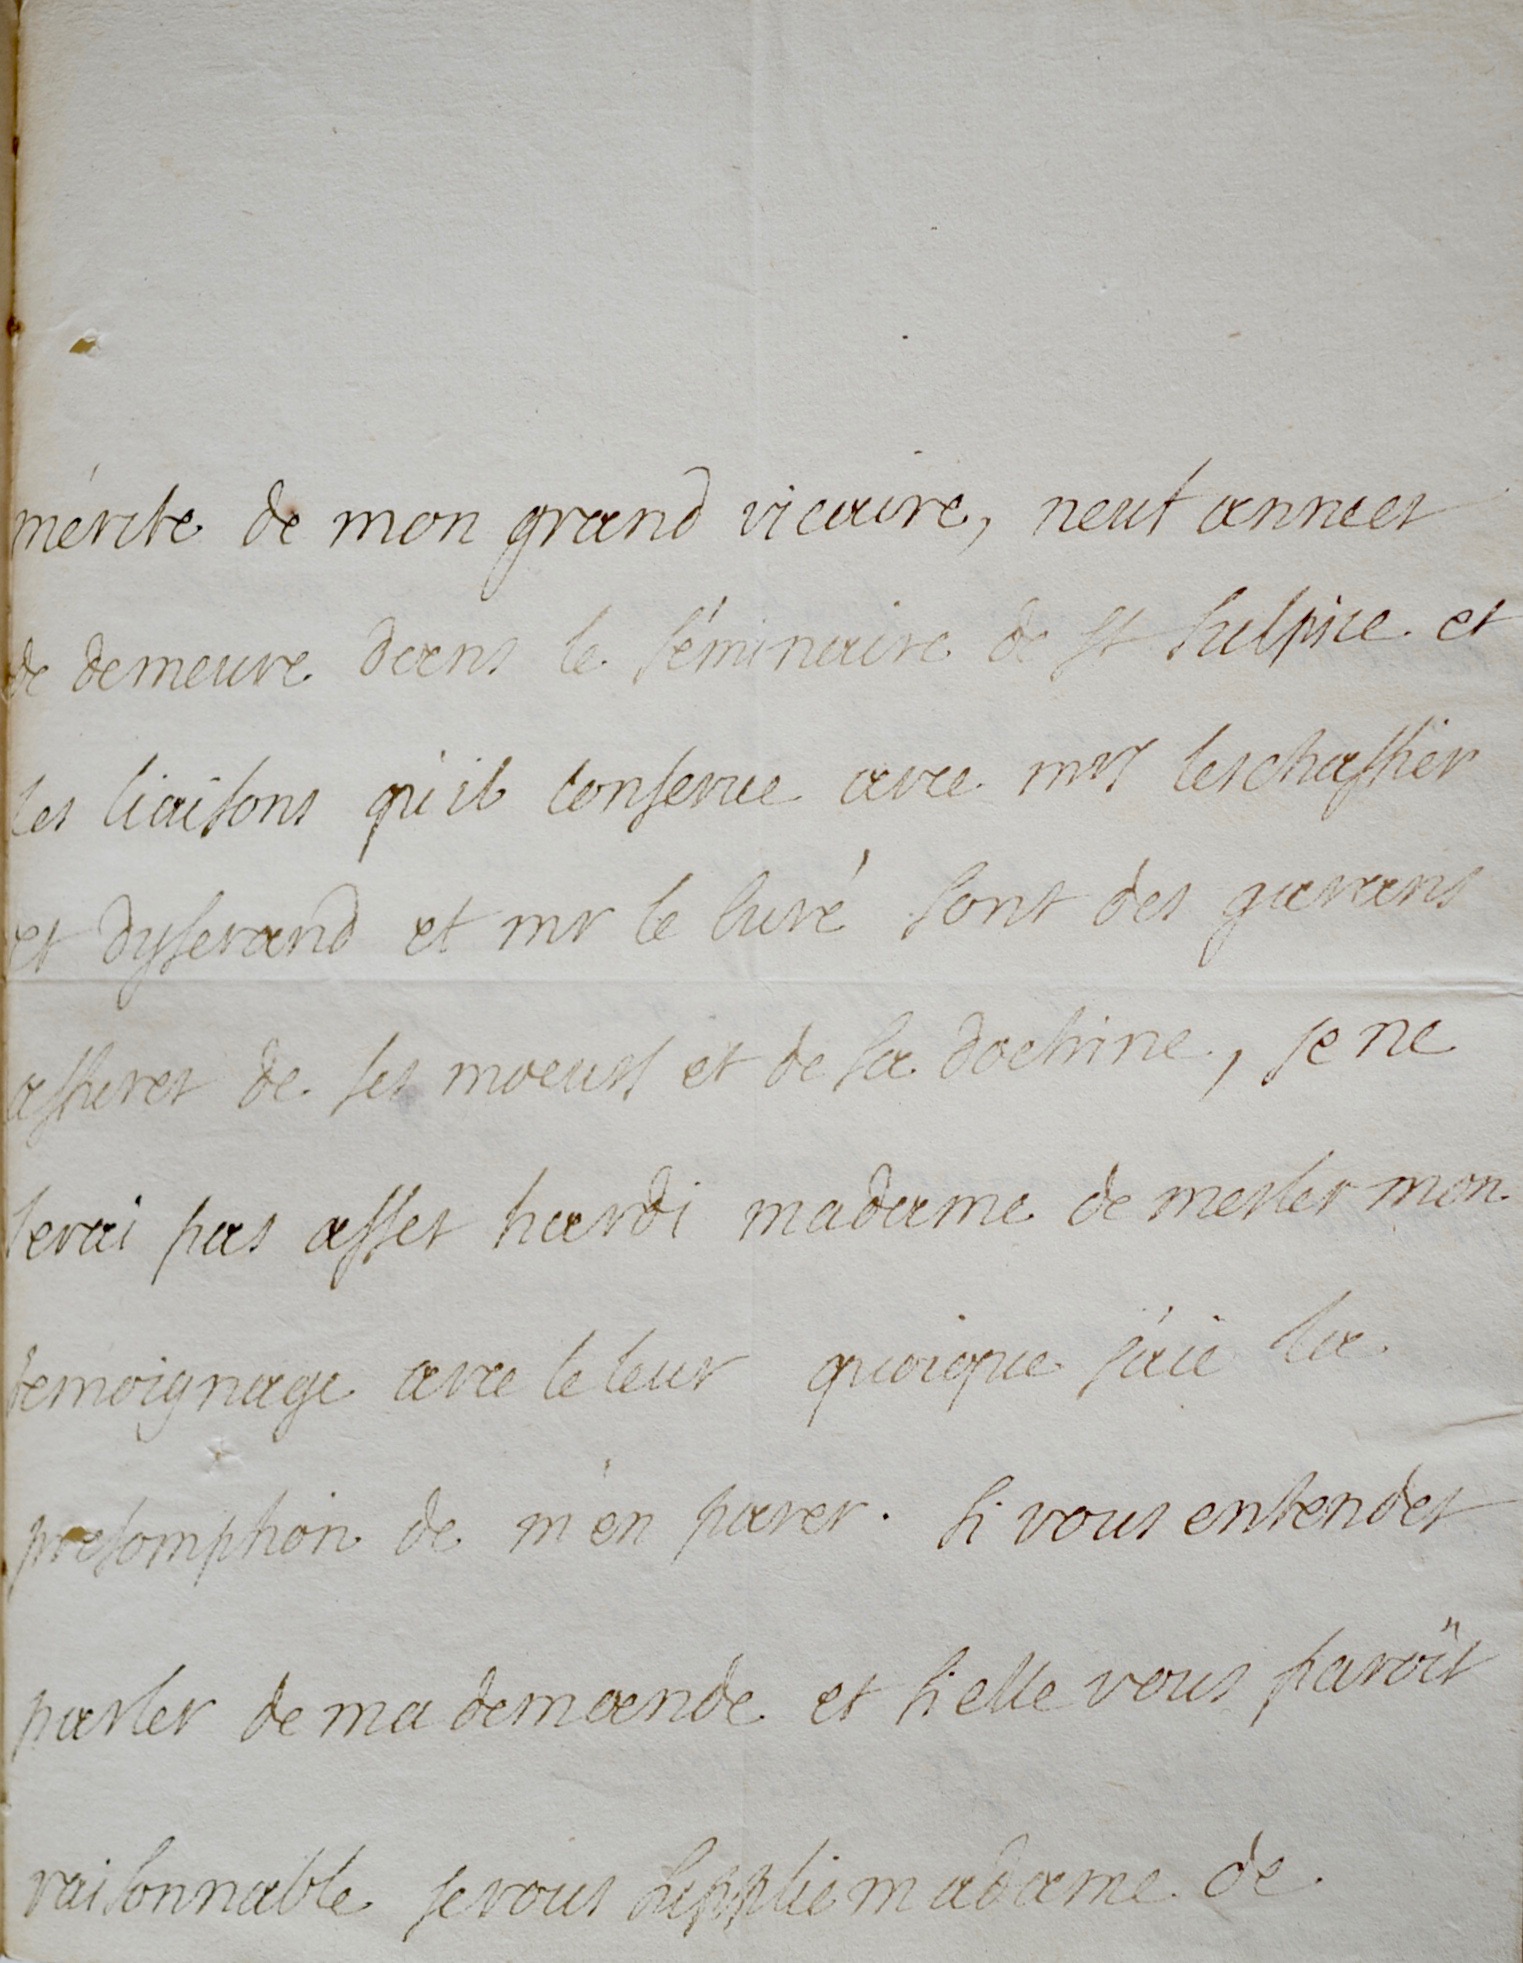 mérite de mon grand vicaire, neuf années
de demeure dans le séminaire de st sulpice et
les liaisons qu'il conserve avec mrs leschassier
et dyserand et mr le curé sont des garans
assurez de ses moeurs et de sa doctrine, je ne
serai pas assez hardi madame de mesler mon
temoignage avec le leur quoique j'aie la
presomption de m'en parer. si vous entendez
parler de ma demande et si elle vous paroît
raisonnable je vous supplie madame de